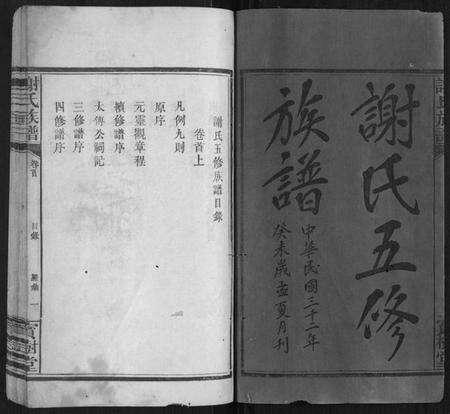 謝氏五修
族譜
中華民國三十二年
癸未歲孟夏月刊
謝氏五修族譜目錄
卷首上
凡例九則
原序
元靈觀章程
續修譜序
太傅公祠記
三修譜序
四修譜序
謝氏族譜
卷首
目錄
一
寶樹堂